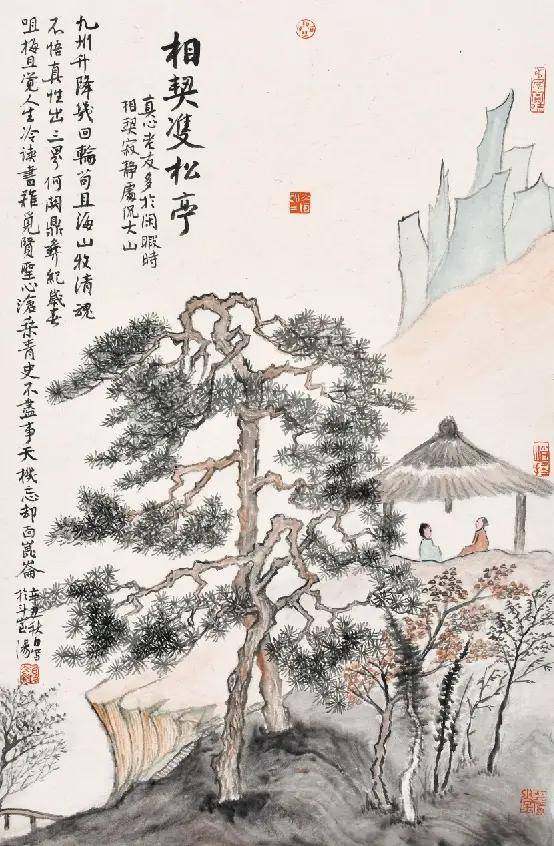 相契雙松亭
真心老友多於闲暇時
相契寂静處况大山
九州升降幾回輪苟且海山牧清魂
不悟真性出三界何関鼎彝紀歲春
咀梅且覺人生冷读書難覓賢聖心滄桑青史不盡事天機忘却西崑崙
辛丑秋日写
於斗